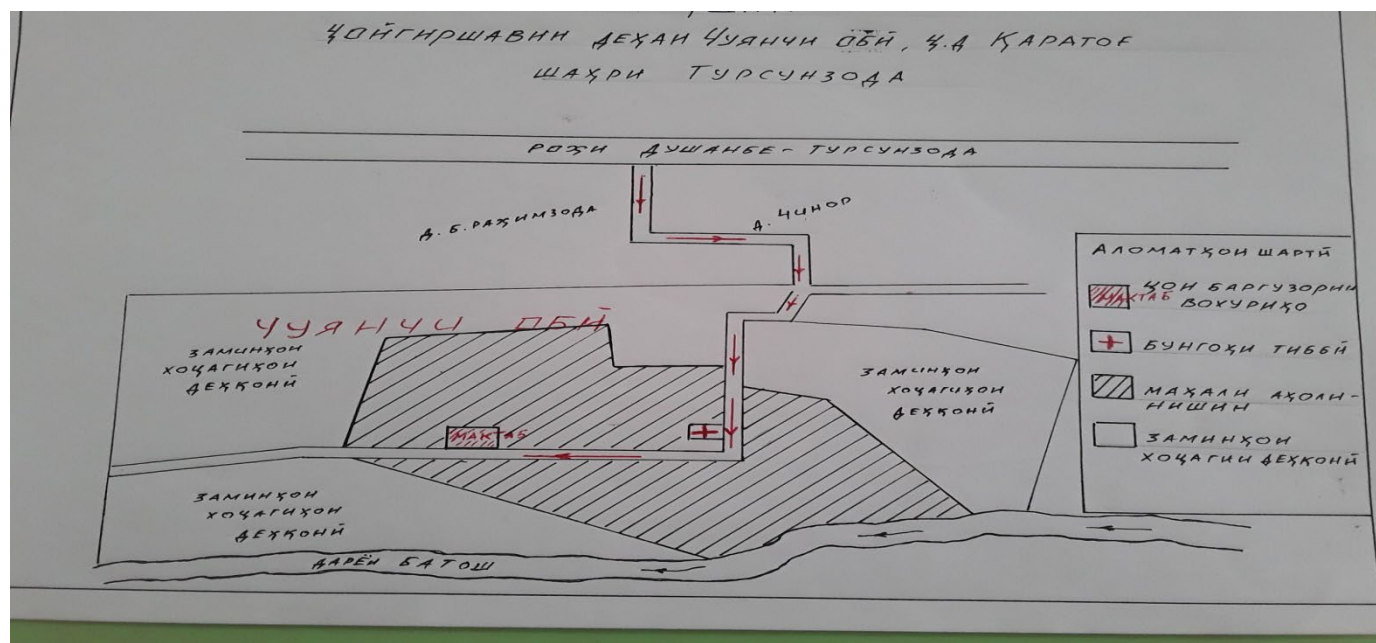 ҶОЙГИРШАВИИ ДЕҲАИ ЧУЯНЧИ ОБӢ, Ҷ.Д ҚАРАТОҒ
ШАҲРИ ТУРСУНЗОДА
РОҲИ ДУШАНБЕ-ТУРСУНЗОДА
Д. Б. РАҲИМЗОДА
Д. ЧИНОР
ЧУЯНЧИ ОБӢ
ЗАМИНҲОИ
ХОҶАГИҲОИ
ДЕҲҚОНӢ
ЗАМИНҲОИ
ХОҶАГИҲОИ
ДЕҲҚОНӢ
МАКТАБ
ЗАМИНҲОИ
ХОҶАГИҲОИ
ДЕҲҚОНӢ
ДАРЁИ БАТОШ
АЛОМАТҲОИ ШАРТӢ
МАКТАБ ҶОИ БАРГУЗОРИИ
ВОХУРИҲО
БУНГОҲИ ТИББӢ
МАҲАЛИ АҲОЛИ-
НИШИН
ЗАМИНҲОИ
ХОҶАГИИ ДЕҲҚОНӢ